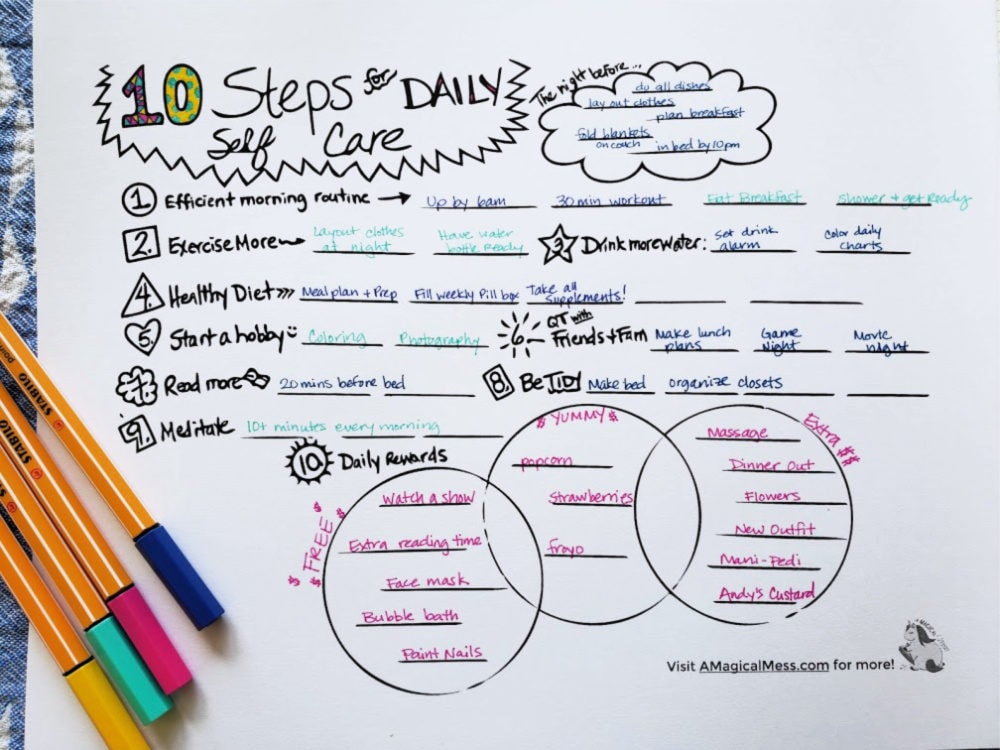 10 Steps for DAILY
Self Care
The night before...
do all dishes
lay out clothes
plan breakfast
fold blankets
on couch
in bed by 10pm
1 Efficient morning routine → Up by 6am 30 min workout Eat Breakfast Shower + get Ready
2. Exercise More Layout clothes at night Have water bottle Ready
3 Drink more Water: Set drink alarm Color daily charts
4. Healthy Diet >>> Meal plan + Prep Fill weekly Pill box Take all Supplements!
5. Start a hobby Coloring Photography
6. QT with Friends + Fam Make lunch plans Game Night Movie night
7. Read more 20 mins before bed
8. Be TIDY Make bed organize closets
9. Meditate 10+ minutes every morning
10. Daily Rewards
$ FREE $ $ $
Watch a show
Extra reading time
Face mask
Bubble bath
Paint Nails
$ YUMMY $
popcorn
Strawberries
froyo
Extra $$ $$
Massage
Dinner Out
Flowers
New Outfit
Mani-Pedi
Andy's Custard
Visit AMagicalMess.com for more!
STABILO
STABILO
STABILO